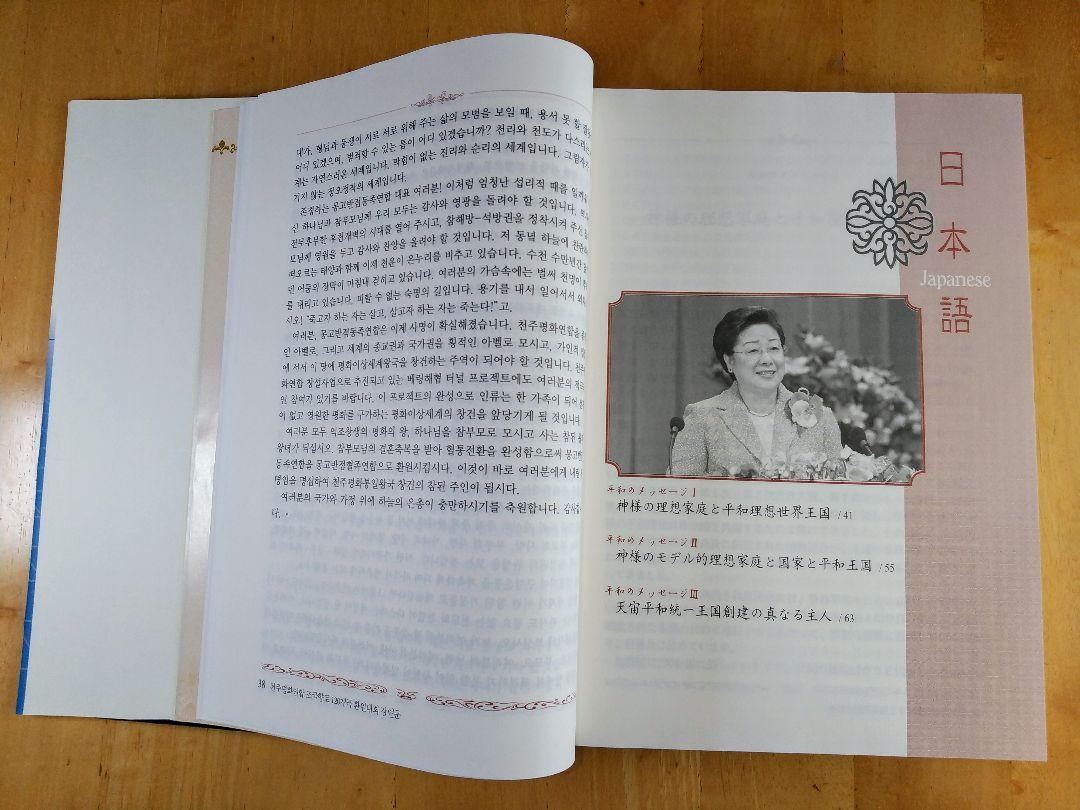 대가, 형님과 동생이 서로 서로 위해 주는 삶의 모범을 보일 때, 용서 못 할
어디 있겠으며, 범죄할 수 있는 틈이 어디 있겠습니까? 천리와 천도가 다스리는
계는 자연스러운 세계입니다. 막힘이 없는 진리와 순리의 세계입니다. 그림자가
기지 않는 정오정착의 세계입니다.
존경하는 몽고반점동족연합 대표 여러분! 이처럼 엄청난 섭리적 때를
신 하나님과 참부모님께 우리 모두는 감사와 영광을 돌려야 할 것입니다.
전무후무한 후천개벽의 시대를 열어 주시고, 참해방-석방권을 정착시켜 주신
모님께 영원을 두고 감사와 찬양을 올려야 할 것입니다. 저 동녘 하늘에
떠오르는 태양과 함께 이제 천운이 온누리를 비추고 있습니다. 수천 수만년간
던 어둠의 장막이 마침내 걷히고 있습니다. 여러분의 가슴속에는 벌써 천명이
를 내리고 있습니다. 피할 수 없는 숙명의 길입니다. 용기를 내서 일어서서
시오! "죽고자 하는 자는 살고, 살고자 하는 자는 죽는다!"고.
여러분, 몽고반점동족연합은 이제 사명이 확실해졌습니다. 천주평화연합을
인 아벨로, 그리고 세계의 종교권과 국가권을 횡적인 아벨로 모시고, 가인적
에 서서 이 땅에 평화이상세계왕국을 창건하는 주역이 되어야 할 것입니다.
화연합 창설사업으로 추진되고 있는 베링해협 터널 프로젝트에도 여러분의
원 참여가 있기를 바랍니다. 이 프로젝트의 완성으로 인류는 한 가족이 되어
이 없고 영원한 평화를 구가하는 평화이상세계의 창건을 앞당기게 될 것입니다.
여러분 모두 억조창생의 평화의 왕, 하나님을 참부모로 모시고 사는 참된
왕녀가 되십시오. 참부모님의 결혼축복을 받아 혈통전환을 완성함으로써
동족연합을 몽고반점혈족연합으로 환원시킵시다. 이것이 바로 여러분에게
명임을 명심하여 천주평화통일왕국 창건의 참된 주인이 됩시다.
여러분의 국가와 가정 위에 하늘의 은총이 충만하시기를 축원합니다.
다.
38
日本語
Japanese
平和のメッセージ I
神様の理想家庭と平和理想世界王国 / 41
平和のメッセージ II
神様のモデル的理想家庭と国家と平和王国 / 55
平和のメッセージ III
天宙平和統一王国創建の真なる主人 / 63